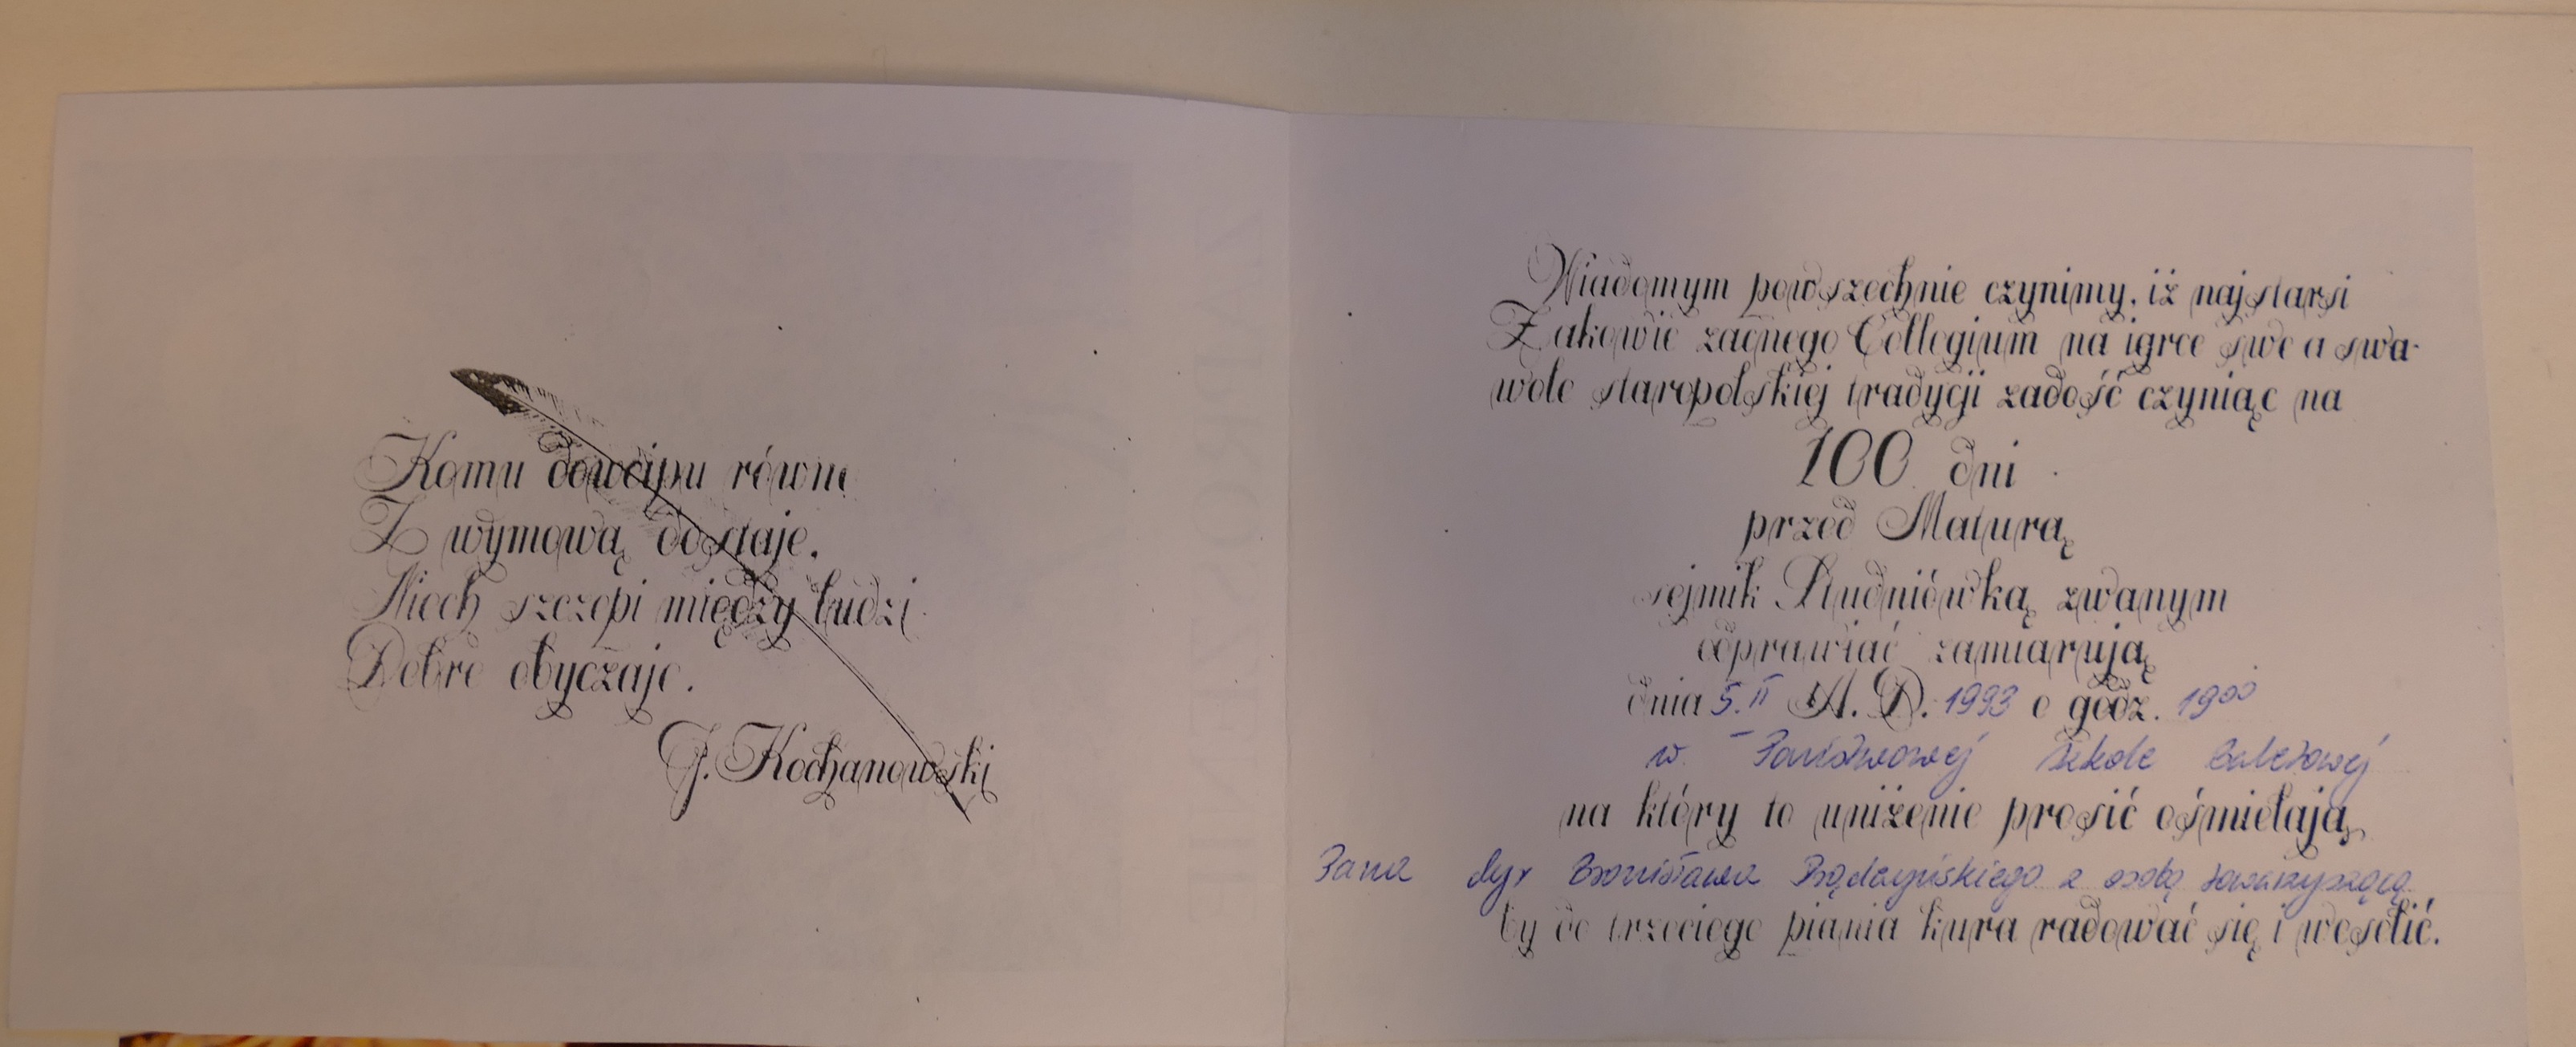 Komu dowcipu równe
Z wymową dostaje.
Niech szczepi między ludzi
Dobre obyczaje.
J. Kochanowski
Wiadomym powszechnie czynimy, iż najstarsi
Żakowie zacnego Collegium na igrce swe a swa-
wole staropolskiej tradycji zadość czyniąc na
100 dni
przed Maturą
sejmik Studniówką zwanym
odprawiać zamiarują
dnia 5.II A.D. 1993 o godz. 19⁰⁰
w Państwowej Szkole Baletowej
na który to uniżenie prosić ośmielają
Pana dyr Bronisława Prądzyńskiego z osobą towarzyszącą
by do trzeciego piania kura radować się i weselić.
ZAPROSZENIE